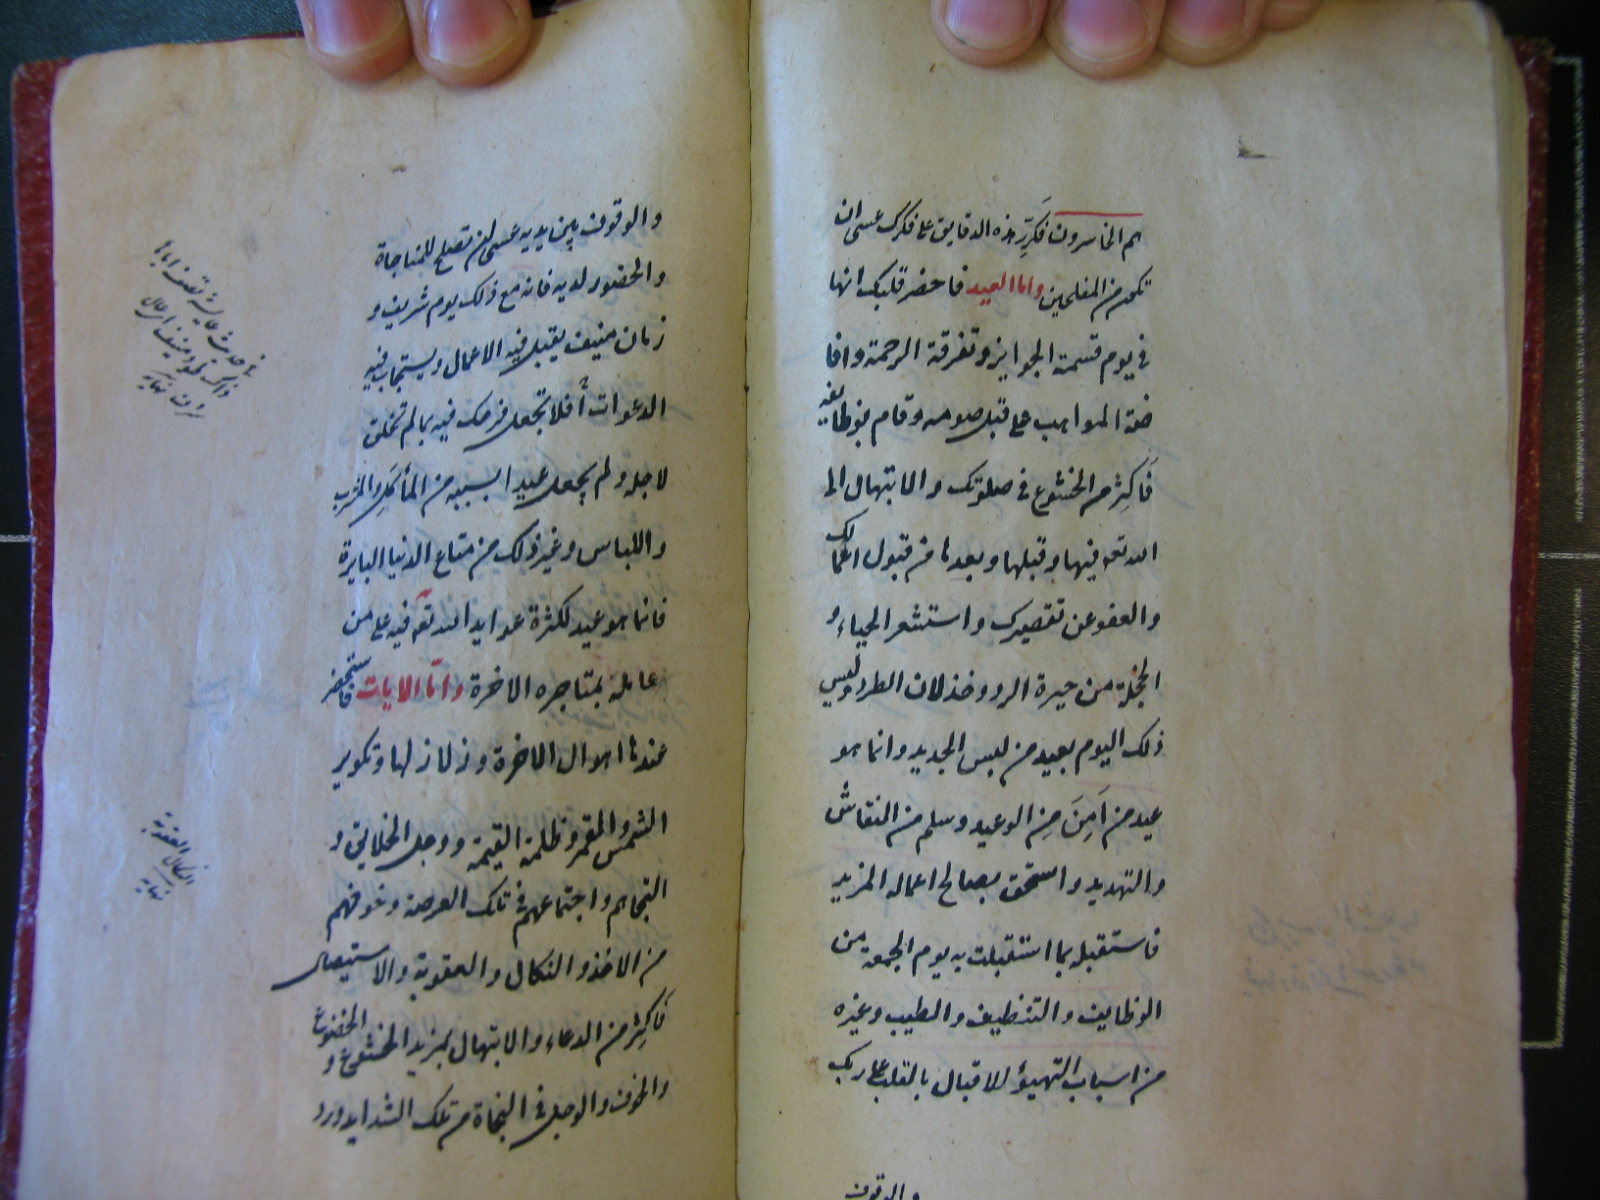 هم الخاسرون فكرّر هذه الدقايق على فكرك عسى ان
تكون من المفلحين واما العيد فاحضر قلبك انها
في يوم قسمة الجوايز وتفرقة الرحمة وافا
ضة المواهب على من قبل صومه وقام بوظايفه
فاكثر من الخشوع في صلوتك والابتهال الى
الله تعه فيها وقبلها وبعدها من قبول اعمالك
والعفو عن تقصيرك واستشعر الحياء و
الخجلة من حيرة الرد وخذلان الطرد وليس
ذلك اليوم بعيد من لبس الجديد وانما هو
عيد من اَمِنَ مِن الوعيد وسلم من النقاش
والتهديد واستحق بصالح اعماله المزيد
فاستقبله بما استقبلت به يوم الجمعة من
الوظايف والتنظيف والطيب وغيره
من اسباب التهيؤ للاقبال بالقلب على ربك
والوقوف
والوقوف بين يديه عسى ان تصلح للمناجاة
والحضور لديه فانه مع ذلك يوم شريف و
زمان منيف يقبل فيه الاعمال ويستجاب فيه
الدعوات أفلا تجعل فرحك فيه بما لم تخلق
لاجله ولم يجعل عيدا بسببه من المأكل والمشرب
واللباس وغير ذلك من متاع الدنيا البايرة
فانما هو عيد لكثرة عوايد الله تعه فيه على من
عامله بمتاجره الاخرة وامّا الايات فاستحضر
عندها اهوال الاخرة وزلازلها وتكوير
الشمس والقمر وظلمة القيمة ووجل الخلايق و
التجاهم واجتماعهم في تلك العرصة وخوفهم
من الاخذ والنكال والعقوبة والاستيصال
فاكثر من الدعاء والابتهال بمزيد الخشوع و الخضوع
والخوف والوجل في النجاة من تلك الشدايد ورد
في حديث عايشة تصف اباها
النكال العقوبة
نهاية